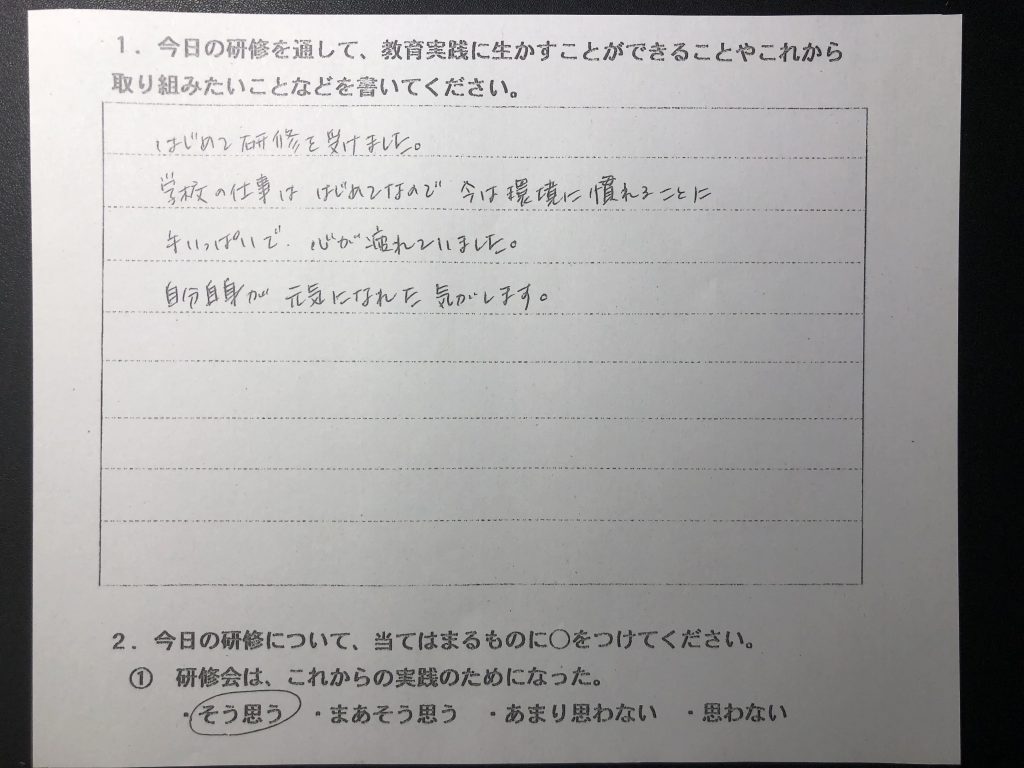 1．今日の研修を通して、教育実践に生かすことができることやこれから
取り組みたいことなどを書いてください。
はじめて研修を受けました。
学校の仕事は はじめてなので 今は環境に慣れることに
手いっぱいで、心が疲れていました。
自分自身が 元気になれた 気がします。
2．今日の研修について、当てはまるものに○をつけてください。
① 研修会は、これからの実践のためになった。
・そう思う ・まあそう思う ・あまり思わない ・思わない